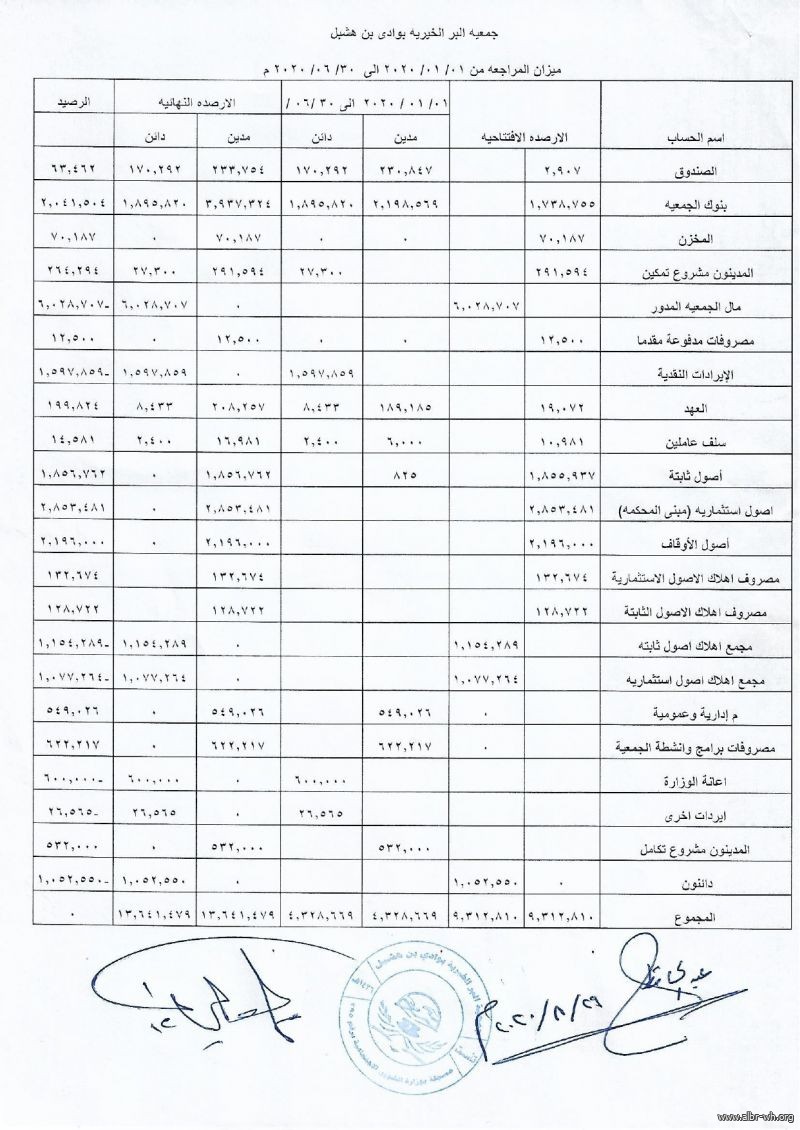 جمعيه البر الخيريه بوادى بن هشبل
ميزان المراجعه من ٠١/ ٠١/ ٢٠٢٠ الى ٣٠/ ٠٦/ ٢٠٢٠ م
اسم الحساب الارصده الافتتاحيه ٠١/ ٠١/ ٢٠٢٠ الى ٣٠/ ٠٦/ الارصده النهائيه الرصيد
مدين دائن مدين دائن
الصندوق ٢,٩٠٧ ٢٣٠,٨٤٧ ١٧٠,٢٩٢ ٢٣٣,٧٥٤ ١٧٠,٢٩٢ ٦٣,٤٦٢
بنوك الجمعيه ١,٧٣٨,٧٥٥ ٢,١٩٨,٥٦٩ ١,٨٩٥,٨٢٠ ٣,٩٣٧,٣٢٤ ١,٨٩٥,٨٢٠ ٢,٠٤١,٥٠٤
المخزن ٧٠,١٨٧ ٠ ٠ ٧٠,١٨٧ ٠ ٧٠,١٨٧
المدينون مشروع تمكين ٢٩١,٥٩٤ ٢٧,٣٠٠ ٢٩١,٥٩٤ ٢٧,٣٠٠ ٢٦٤,٢٩٤
مال الجمعيه المدور ٦,٠٢٨,٧٠٧ ٠ ٦,٠٢٨,٧٠٧ ٦,٠٢٨,٧٠٧-
مصروفات مدفوعة مقدما ١٢,٥٠٠ ٠ ٠ ١٢,٥٠٠ ٠ ١٢,٥٠٠
الإيرادات النقدية ١,٥٩٧,٨٥٩ ٠ ١,٥٩٧,٨٥٩ ١,٥٩٧,٨٥٩-
العهد ١٩,٠٧٢ ١٨٩,١٨٥ ٨,٤٣٣ ٢٠٨,٢٥٧ ٨,٤٣٣ ١٩٩,٨٢٤
سلف عاملين ١٠,٩٨١ ٦,٠٠٠ ٢,٤٠٠ ١٦,٩٨١ ٢,٤٠٠ ١٤,٥٨١
أصول ثابتة ١,٨٥٥,٩٣٧ ٨٢٥ ١,٨٥٦,٧٦٢ ٠ ١,٨٥٦,٧٦٢
اصول استثماريه (مبنى المحكمه) ٢,٨٥٣,٤٨١ ٢,٨٥٣,٤٨١ ٠ ٢,٨٥٣,٤٨١
أصول الأوقاف ٢,١٩٦,٠٠٠ ٢,١٩٦,٠٠٠ ٠ ٢,١٩٦,٠٠٠
مصروف اهلاك الاصول الاستثمارية ١٣٢,٦٧٤ ١٣٢,٦٧٤ ١٣٢,٦٧٤
مصروف اهلاك الاصول الثابتة ١٢٨,٧٢٢ ١٢٨,٧٢٢ ١٢٨,٧٢٢
مجمع اهلاك اصول ثابته ١,١٥٤,٢٨٩ ٠ ١,١٥٤,٢٨٩ ١,١٥٤,٢٨٩-
مجمع اهلاك اصول استثماريه ١,٠٧٧,٢٦٤ ٠ ١,٠٧٧,٢٦٤ ١,٠٧٧,٢٦٤-
م إدارية وعمومية ٠ ٥٤٩,٠٢٦ ٥٤٩,٠٢٦ ٠ ٥٤٩,٠٢٦
مصروفات برامج وانشطة الجمعية ٠ ٦٢٢,٢١٧ ٦٢٢,٢١٧ ٠ ٦٢٢,٢١٧
اعانة الوزارة ٦٠٠,٠٠٠ ٠ ٦٠٠,٠٠٠ ٦٠٠,٠٠٠-
ايردات اخرى ٢٦,٥٦٥ ٠ ٢٦,٥٦٥ ٢٦,٥٦٥-
المدينون مشروع تكامل ٥٣٢,٠٠٠ ٥٣٢,٠٠٠ ٠ ٥٣٢,٠٠٠
دائنون ٠ ١,٠٥٢,٥٥٠ ٠ ١,٠٥٢,٥٥٠ ١,٠٥٢,٥٥٠-
المجموع ٩,٣١٢,٨١٠ ٩,٣١٢,٨١٠ ٤,٣٢٨,٦٦٩ ٤,٣٢٨,٦٦٩ ١٣,٦٤١,٤٧٩ ١٣,٦٤١,٤٧٩ ٠
البر الخيرية بوادي بن هشبل
www.albr-wh.org